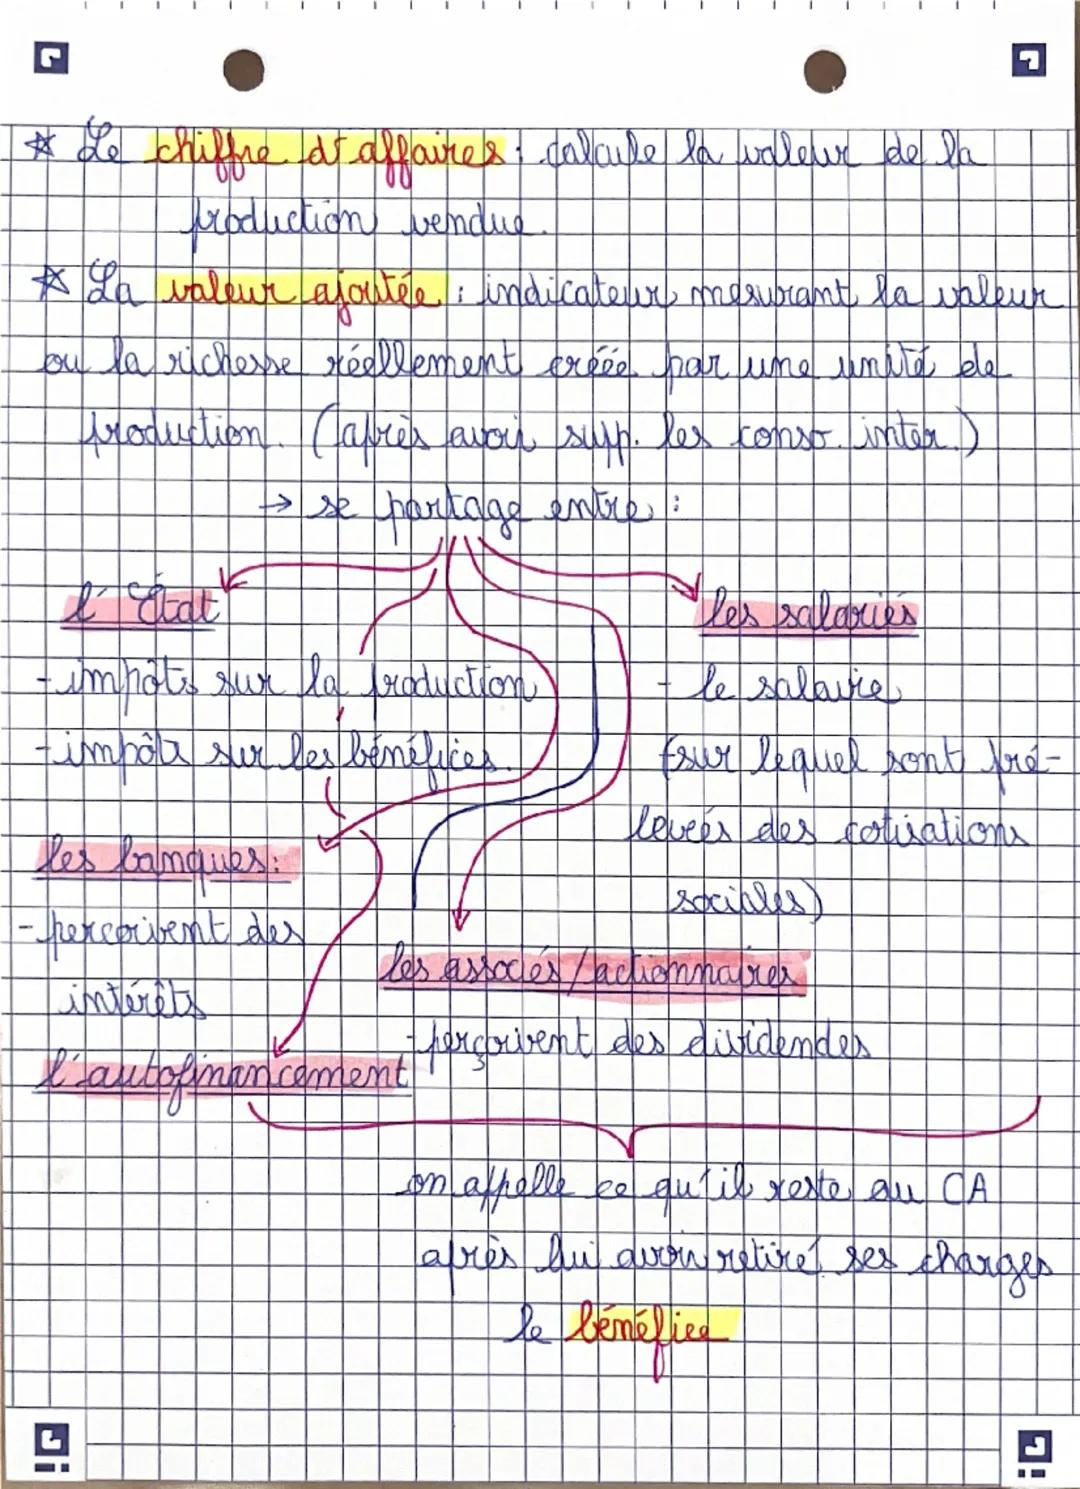 ☆ Le chiffre d'affaires : calcule la valeur de la
production vendue.
☆ La valeur ajoutée : indicateur mesurant la valeur
ou la richesse réellement créée par une unité de
production. (après avoir supp. les conso. inter.)
→ se partage entre :
l'État
- impôts sur la production
- impôts sur les bénéfices.
les salariés
- le salaire
(sur lequel sont pré-
levées des cotisations
sociales)
les banques :
- percoivent des
intérêts
les associés/actionnaires
- perçoivent des dividendes
l'autofinancement
on appelle ce qu'il reste au CA
après lui avoir retiré ses charges
le bénéfice